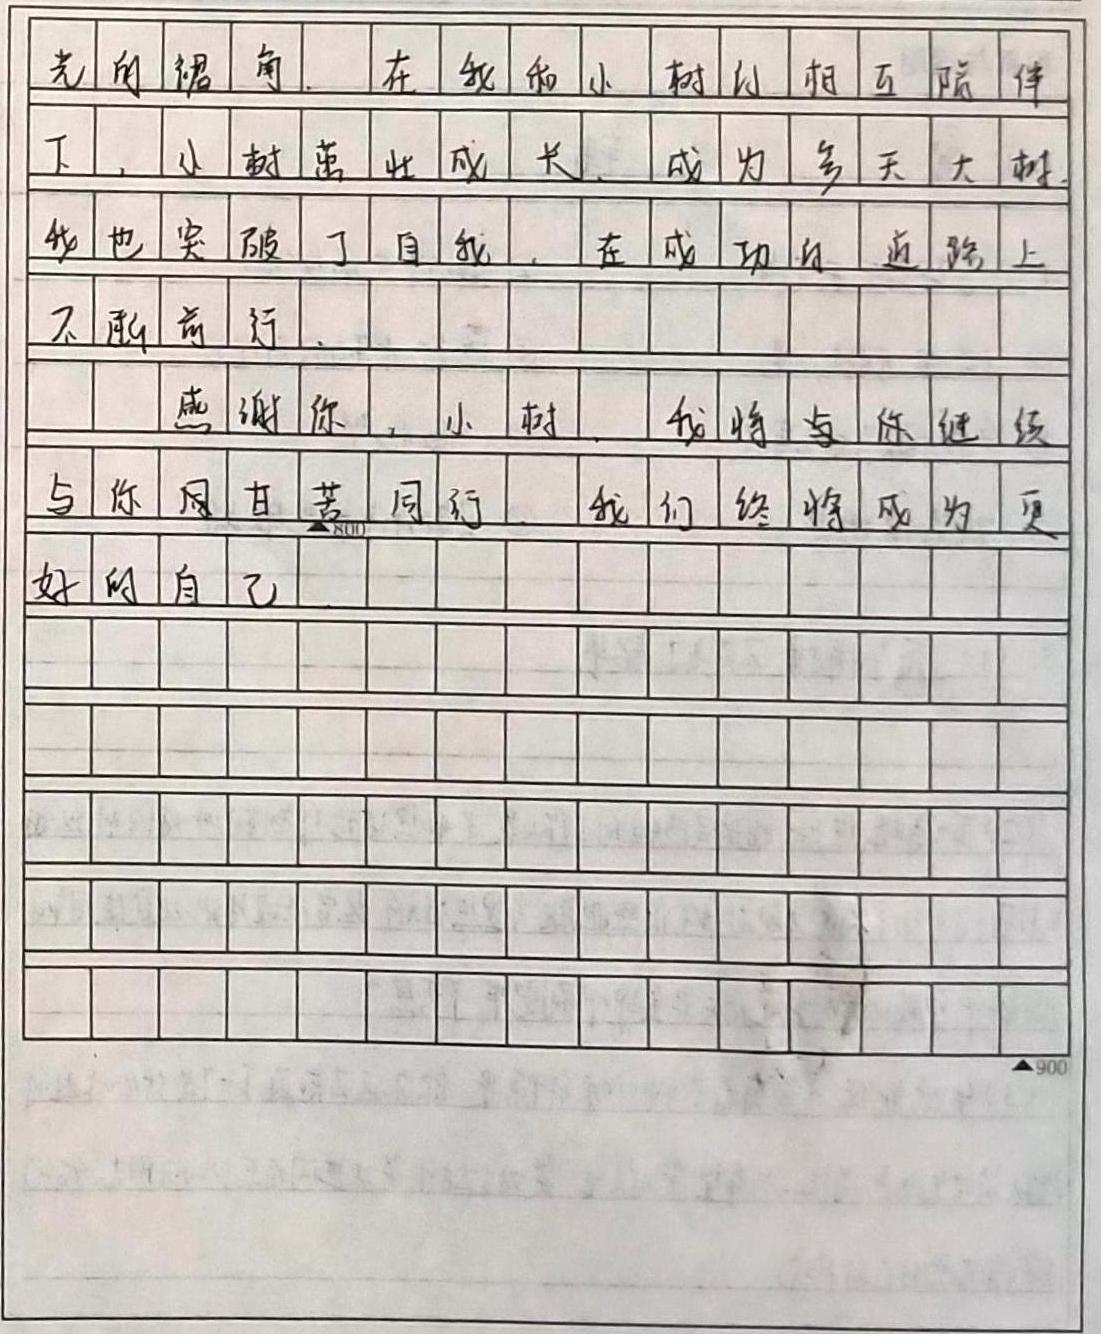 光的裙角.在我和小树的相互陪伴
下,小树茁壮成长.成为参天大树.
我也突破了自我,在成功的道路上
不断前行.
感谢你,小树.我将与你继续
与你同甘苦同行.我们终将成为更
▲800
好的自己.
▲900